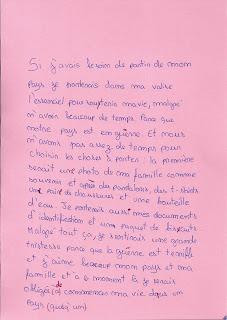 Si j'avais besoin de partir de mon
pays je porterais dans ma valise
l'essenciel pour souptenir ma vie, malgré
n'avoir beaucoup de temps. Parce que
notre pays est em guerre. Et nous
n'avons pas assez de temps pour
choisir les choses à porter : la première
serait une photo de ma famille comme
souvenir et après des pantalons, des t-shirts
une paire de chaussures et une bouteille
d'eau. Je porterais aussi mes documents
d'identification et un paquet de biscuits
Malgré tout ça, je sentirais une grande
tristesse parce que la guerre est terrible
et j'aime beaucoup mon pays et ma
famille et à ce moment là je serais
obligé(e) de commencer ma vie dans un
pays (quelqu'un)